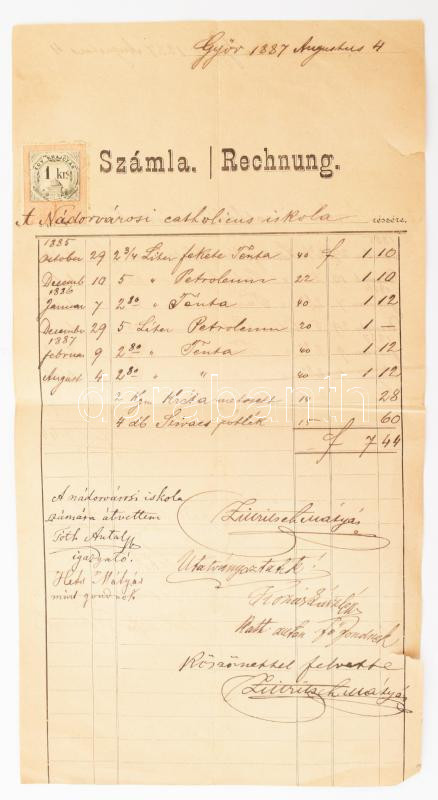 Győr 1887 Augustus 4
1 kr
Számla. | Rechnung.
A Nádorvárosi catholicus iskola részére
1885
October 29 2 3/4 Liter fekete Tenta 40 f 1 10
Decemb 10 5 " Petroleum 22 1 10
1886
Januar 7 2 80 " Tenta 40 1 12
December 29 5 Liter Petroleum 20 1 —
1887
februar 9 2 80 " Tenta 40 1 12
August 4 2 80 " " 40 1 12
2 Kgm Kréta 14 28
4 db Szivacs 15 60
f 7 44
A nádorvárosi iskola
számára átvettem
Tóth Antal
igazgató.
Hets Mátyás
mint gondnok
Mátyás
Utalványoztatik!
Köszönettel felvette
Mátyás
darabanth